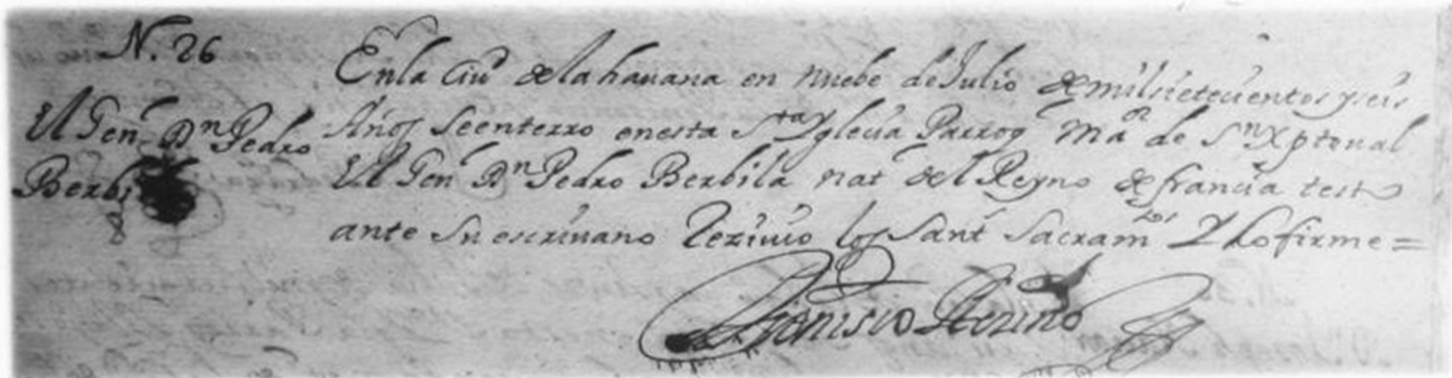 N. 26
El Gen.l Dn Pedro
Berbi
En la Ciud de la havana en nuebe de Julio de mil sietecientos y seis
Años se enterro en esta Sta Yglecia Parroq Mor de Sn Xptoual
El Gen Dn Pedro Berbila nat del Reyno de francia testo
ante su escriuano Reziuio los Sant Sacramtos Y lo firme =
Dionisio Rezino